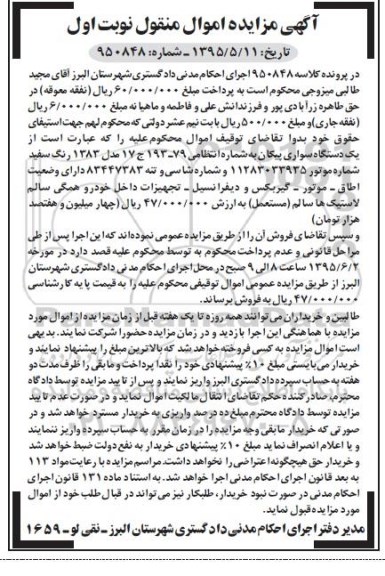 آگهی مزایده اموال منقول نوبت اول
تاریخ: ۱۳۹۵/۵/۱۱ – شماره: ۹۵۰۸۴۸
در پرونده کلاسه ۹۵۰۸۴۸ اجرای احکام مدنی دادگستری شهرستان البرز آقای مجید
طالبی میزوجی محکوم است به پرداخت مبلغ ۶۰/۰۰۰/۰۰۰ ریال (نفقه معوقه) در
حق طاهره زرآبادی پور و فرزندانش علی و فاطمه و ماهیانه مبلغ ۶/۰۰۰/۰۰۰ ریال
(نفقه جاری) و مبلغ ۵۰۰/۰۰۰ ریال بابت نیم عشر دولتی که محکوم لهم جهت استیفای
حقوق خود بدوا تقاضای توقیف اموال محکوم علیه را که عبارت است از
یک دستگاه سواری پیکان به شماره انتظامی ۷۹–۱۹۳ ج ۱۷ مدل ۱۳۸۳ رنگ سفید
شماره موتور ۱۱۲۸۳۰۳۳۹۳۵ و شماره شاسی و تنه ۸۳۴۴۷۳۸۳ دارای وضعیت
اطاق – موتور – گیربکس و دیفرانسیل – تجهیزات داخل خودرو همگی سالم
لاستیک ها سالم (مستعمل) به ارزش ۴۷/۰۰۰/۰۰۰ ریال (چهار میلیون و هفتصد
هزار تومان)
و سپس تقاضای فروش آن را از طریق مزایده عمومی نموده‌اند که این اجرا پس از طی
مراحل قانونی و عدم پرداخت محکوم به توسط محکوم علیه قصد دارد در مورخه
۱۳۹۵/۶/۲ ساعت ۸ الی ۹ صبح در محل اجرای احکام مدنی دادگستری شهرستان
البرز از طریق مزایده عمومی اموال توقیفی محکوم علیه را به قیمت پایه کارشناسی
۴۷/۰۰۰/۰۰۰ ریال به فروش برساند.
طالبین و خریداران می توانند همه روزه تا یک هفته قبل از زمان مزایده از اموال مورد
مزایده با هماهنگی این اجرا بازدید و در زمان مزایده حضورا شرکت نمایند. بدیهی
است اموال مزایده به کسی فروخته خواهد شد که بالاترین مبلغ را پیشنهاد نمایند و
خریدار می‌بایستی مبلغ ۱۰٪ پیشنهادی خود را نقدا پرداخت و مابقی را ظرف مدت دو
هفته به حساب سپرده دادگستری البرز واریز نمایند و پس از تایید مزایده توسط دادگاه
محترم، صادرکننده حکم تقاضای انتقال مالکیت اموال نماید و در صورت عدم تایید
مزایده توسط دادگاه محترم مبلغ ده درصد واریزی به خریدار مسترد خواهد شد و در
صورتی که خریدار مابقی وجه مزایده را در زمان مقرر به حساب سپرده واریز ننمایند
و یا اعلام انصراف نماید مبلغ ۱۰٪ پیشنهادی خریدار به نفع دولت ضبط خواهد شد
و خریدار حق هیچگونه اعتراضی را نخواهد داشت. مراسم مزایده با رعایت مواد ۱۱۳
به بعد قانون اجرای احکام مدنی اجرا خواهد شد. به استناد ماده ۱۳۱ قانون اجرای
احکام مدنی در صورت نبود خریدار، طلبکار نیز می‌تواند در قبال طلب خود از اموال
مورد مزایده قبول نماید.
مدیر دفتر اجرای احکام مدنی دادگستری شهرستان البرز – نقی لو – ۱۶۵۹